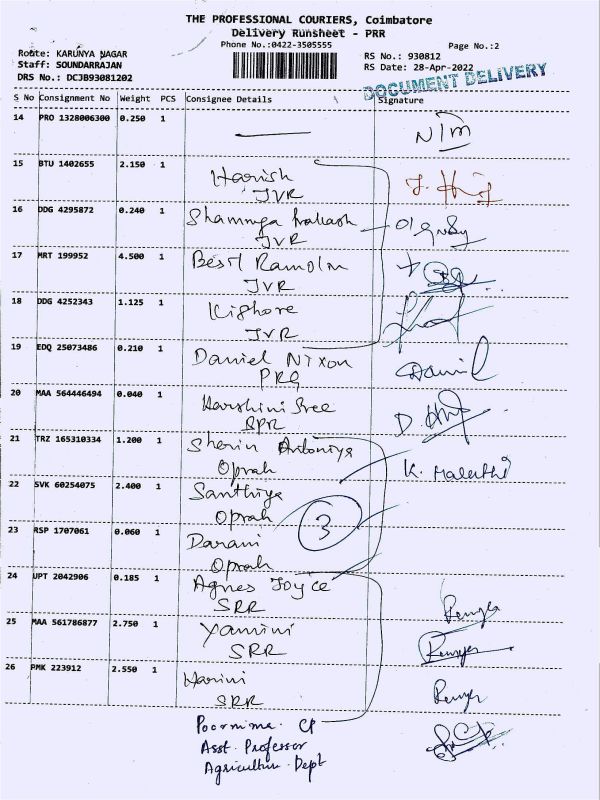 THE PROFESSIONAL COURIERS, Coimbatore
Delivery Runsheet - PRR
Phone No.:0422-3505555
Page No.:2
Route: KARUNYA NAGAR
RS No.: 930812
Staff: SOUNDARRAJAN
RS Date: 28-Apr-2022
DRS No.: DCJB93081202
DOCUMENT DELIVERY
S No Consignment No Weight PCS Consignee Details Signature
14 PRO 1328006300 0.250 1
15 BTU 1402655 2.150 1 Harish
JVR
16 DDG 4295872 0.240 1 Shanmuga
JVR
17 MRT 199952 4.500 1 Best
JVR
18 DDG 4252343 1.125 1 Kishore
JVR
19 EDQ 25073486 0.210 1 Daniel Nixon Daniel
PRG
20 MAA 564446494 0.040 1 Harshini Sree
21 TRZ 165310334 1.200 1 Sherin K. Malathi
Oprah
22 SVK 60254075 2.400 1 Santhiya
Oprah
3
23 RSP 1707061 0.060 1 Darani
Oprah
24 UPT 2042906 0.185 1 Agnes Joyce
SRR
25 MAA 561786877 2.750 1 Yamini
SRR
26 PMK 223912 2.550 1 Harini
SRR
Poornima. CP
Asst. Professor
Agriculture. Dept